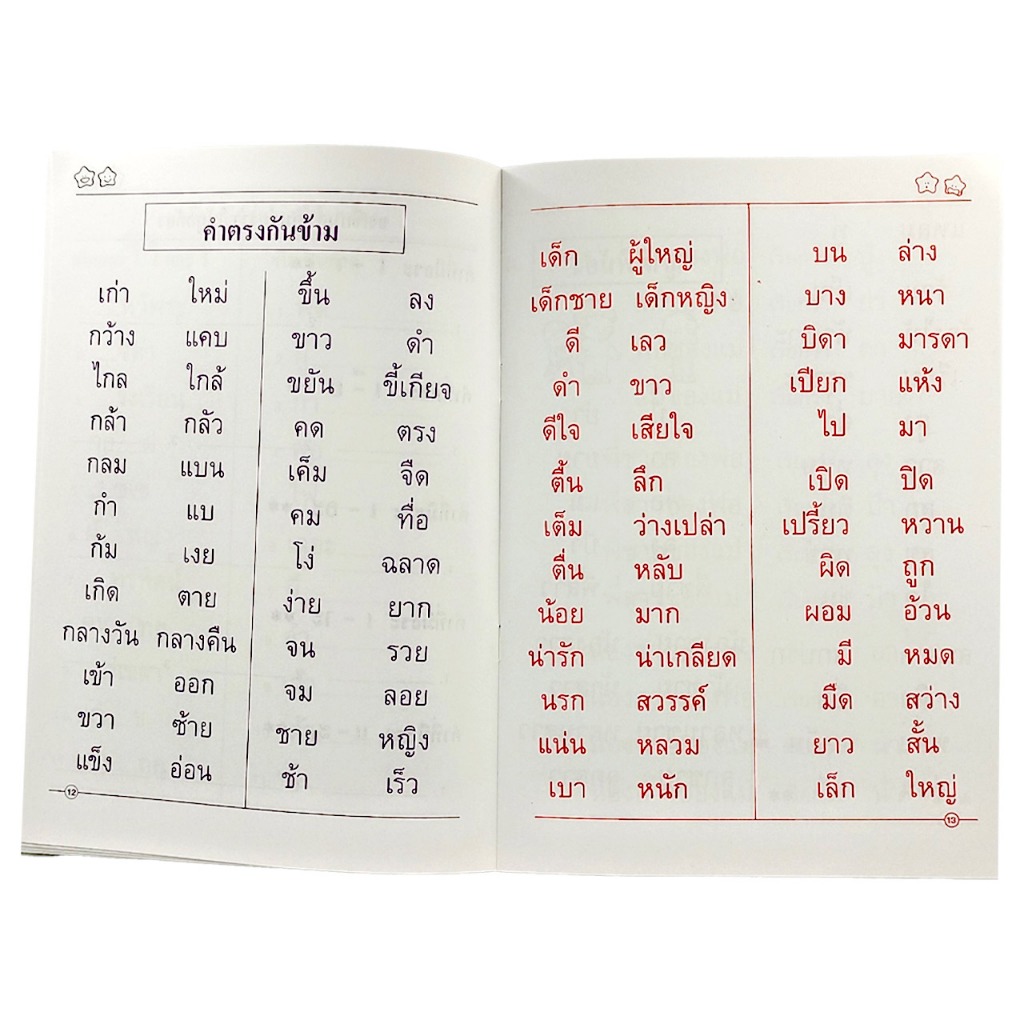 คำตรงกันข้าม
เก่า ใหม่
กว้าง แคบ
ไกล ใกล้
กล้า กลัว
กลม แบน
กำ แบ
ก้ม เงย
เกิด ตาย
กลางวัน กลางคืน
เข้า ออก
ขวา ซ้าย
แข็ง อ่อน
ขึ้น ลง
ขาว ดำ
ขยัน ขี้เกียจ
คด ตรง
เค็ม จืด
คม ทื่อ
โง่ ฉลาด
ง่าย ยาก
จน รวย
จม ลอย
ชาย หญิง
ช้า เร็ว
12
เด็ก ผู้ใหญ่
เด็กชาย เด็กหญิง
ดี เลว
ดำ ขาว
ดีใจ เสียใจ
ตื้น ลึก
เต็ม ว่างเปล่า
ตื่น หลับ
น้อย มาก
น่ารัก น่าเกลียด
นรก สวรรค์
แน่น หลวม
เบา หนัก
บน ล่าง
บาง หนา
บิดา มารดา
เปียก แห้ง
ไป มา
เปิด ปิด
เปรี้ยว หวาน
ผิด ถูก
ผอม อ้วน
มี หมด
มืด สว่าง
ยาว สั้น
เล็ก ใหญ่
13